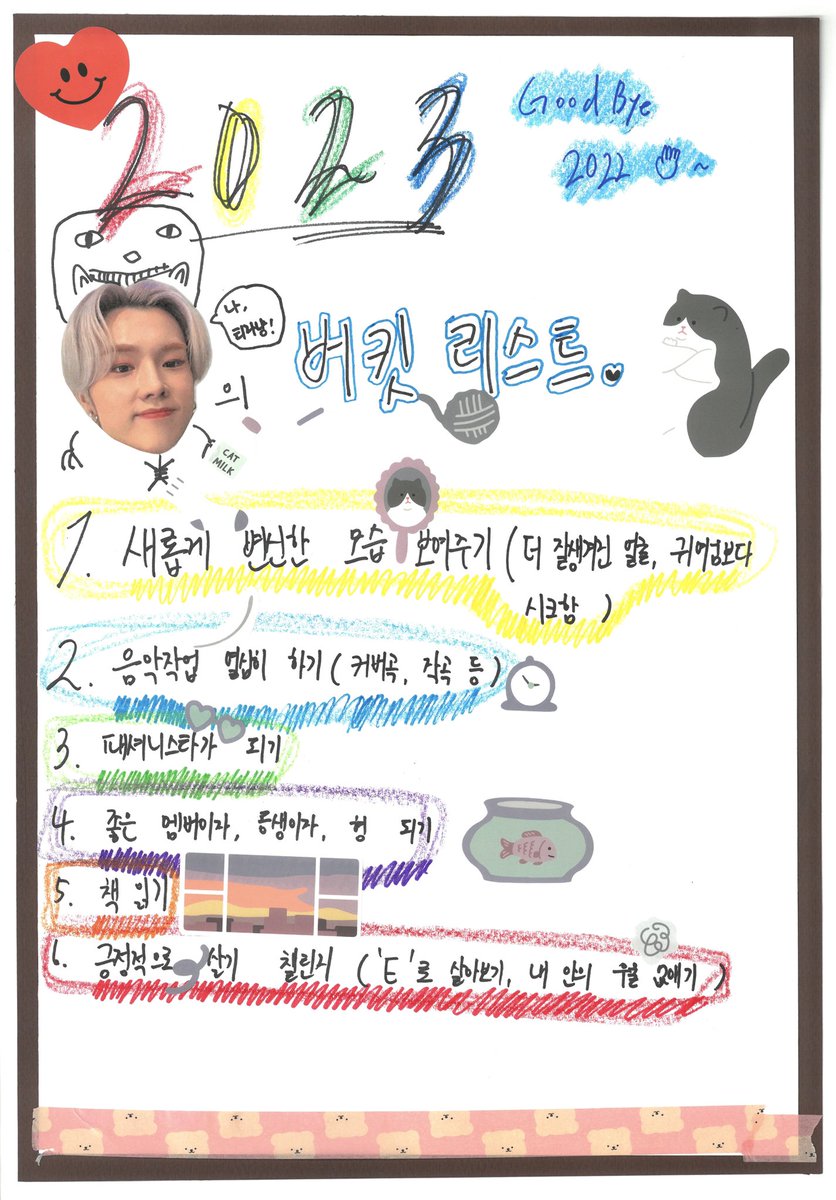 2023
Good Bye
2022 ~
나,
티라냥!
의
버킷 리스트.
CAT
MILK
1. 새롭게 변신한 모습 보여주기 (더 잘생겨진 얼굴, 귀여움보다
시크함 )
2. 음악작업 열심히 하기 ( 커버곡, 작곡 등 )
3. 패셔니스타가 되기
4. 좋은 멤버이자, 동생이자, 형 되기
5. 책 읽기
6. 긍정적으로 살기 챌린지 ( 'E'로 살아보기, 내 안의 우울 없애기 )